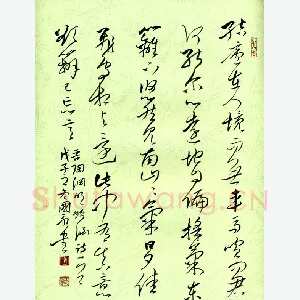 结庐在人境而无车马喧问君
何能尔心远地自偏採菊东
篱下悠然见南山气日夕佳
飞鸟相与还此中有真意
欲辨已忘言
陶渊明饮酒诗一首
戊子